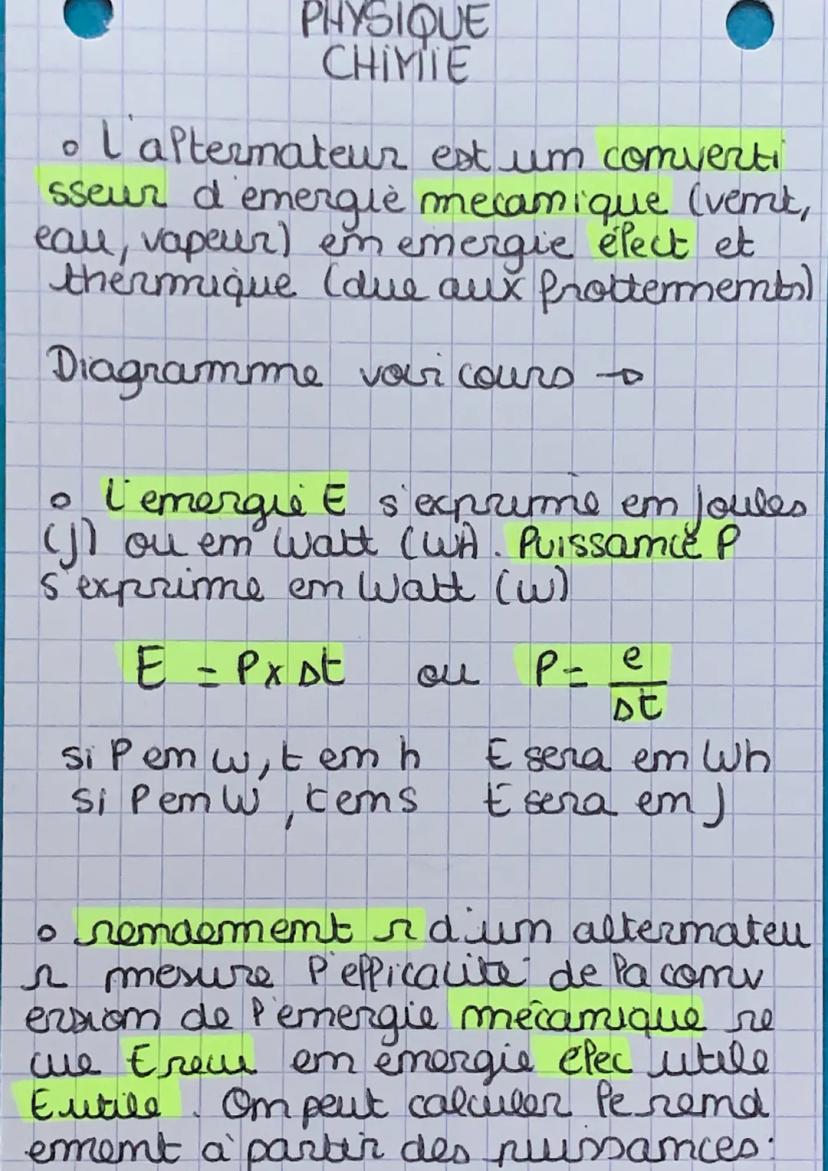 PHYSIQUE
CHIMIE
o L'alternateur est un converti
sseur d'energie mecanique (vent,
eau, vapeur) en energie élect et
thermique (due aux frottements)
Diagramme voir cours →
o L'energie E s'exprime en joules
(J) ou en Watt (Wh). Puissance P
s'exprime en Watt (W)
E = P x Δt ou P = e / Δt
si P en W, t en h E sera en Wh
si P en W, t en s E sera en J
o rendement r d'un alternateu
r mesure l'efficacité de la conv
ersion de l'energie mécanique re
cue Erecu en énergie elec utile
E utile. On peut calculer le rend
ement à partir des puissances: